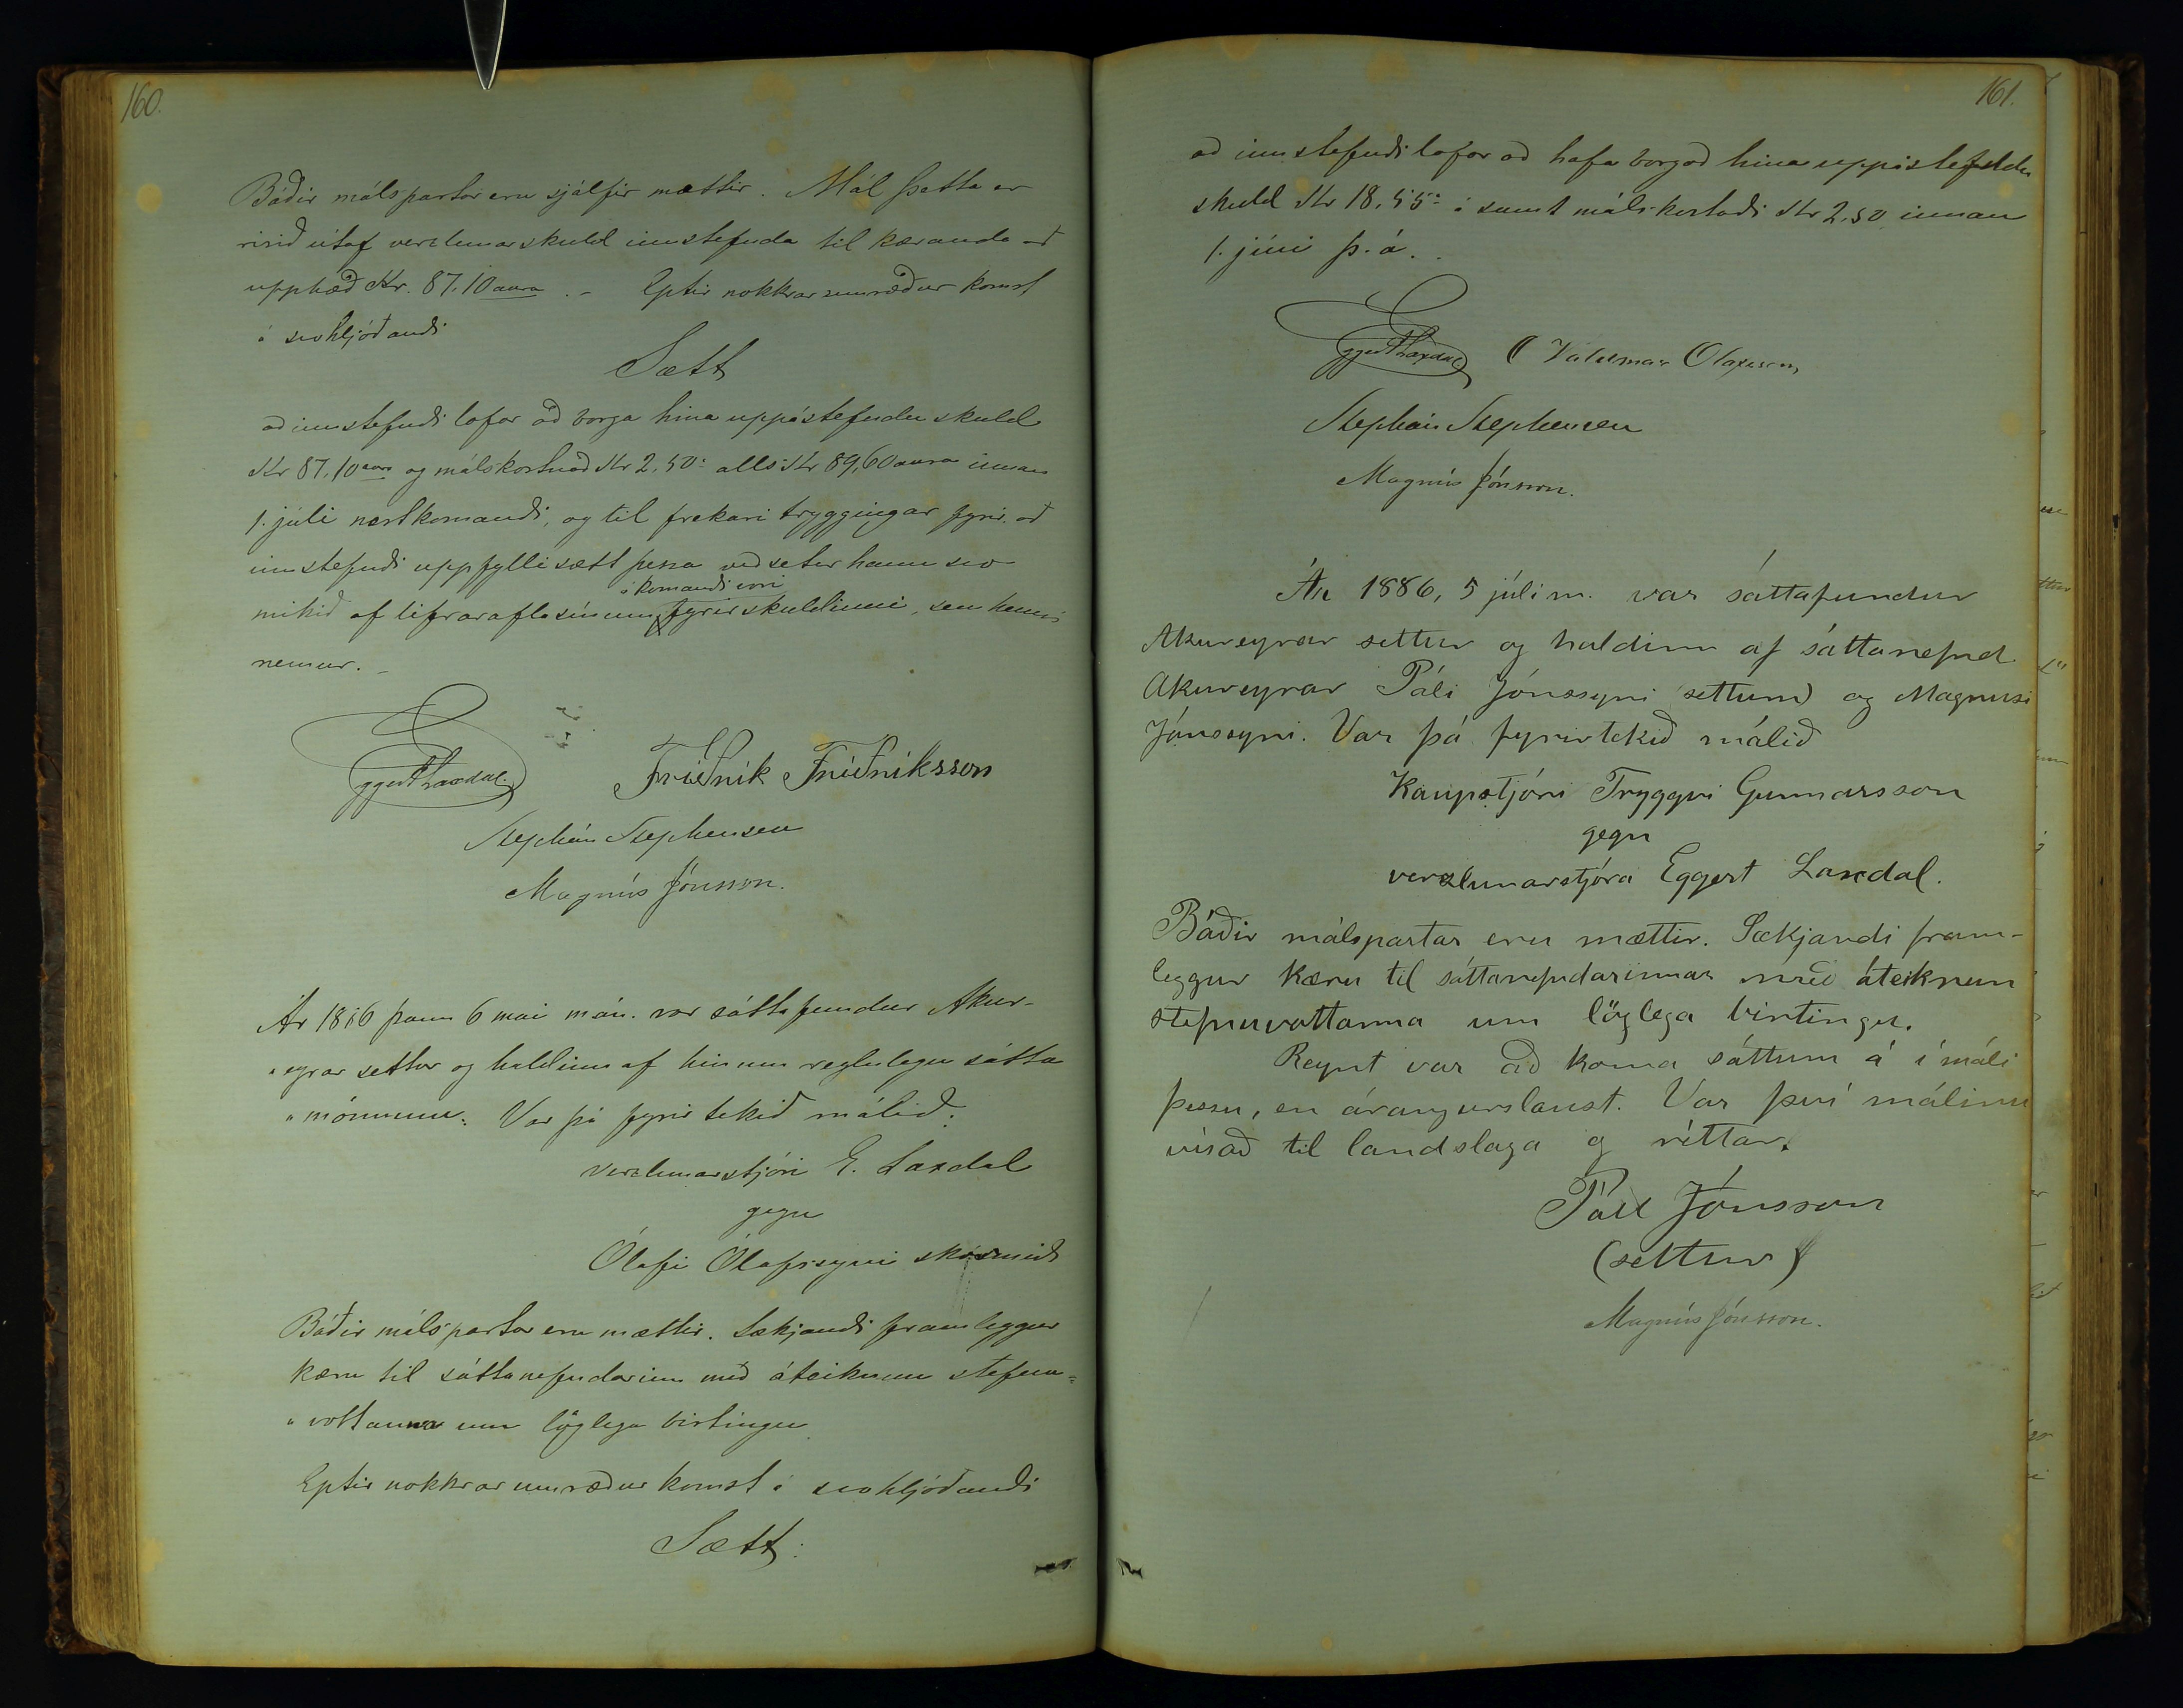 160.
Báðir málspartar eru sjálfir mættir. Mál þetta er
risið útaf verzlunarskuld innstefnda til kæranda að
upphæð Kr. 87.10 aura. – Eptir nokkrar umræður komst
á svohljóðandi
Sætt
að innstefndi lofar að borga hina uppástefndu skuld
Kr 87.10 aura og málskostnað Kr 2.50: alls Kr 89,60 aura innan
1. júlí næstkomandi, og til frekari tryggingar fyrir að
innstefndi uppfylli sætt þessa veðsetur hann svo
mikið af lifrarafla sínum á komandi vori fyrir skuldinni, sem henni
nemur. –
Eggert Laxdal. Friðrik Friðriksson
Stephán Stephensen
Magnús Jónsson.
Ár 1886 þann 6 mai mán. var sáttafundur Akur-
„eyrar settur og haldinn af hinum reglulegu sátta
„mönnum. Var þá fyrir tekið málið:
Verzlunarstjóri E. Laxdal
gegn
Ólafi Ólafssyni skósmið
Báðir málspartar eru mættir. Sækjandi framleggur
kæru til sáttanefndarinn með áteiknun stefnu=
„vottanna um löglega birtingu
Eptir nokkrar umræður komst á svohljóðandi
Sætt:
161.
að innstefndi lofar að hafa borgað hina uppástefndu
skuld Kr 18.55: á samt málskostaði Kr 2.50 innan
1. júni þ. á. .
Eggert Laxdal Valdemar Olafsson
Stephán Stephensen
Magnús Jónsson.
Ár 1886, 5 júlí m. var sáttafundur
Akureyrar settur og haldinn af sáttanefnd
Akureyrar Páli Jónssyni (settum) og Magnusi
Jónssyni. Var þá fyrirtekið málið
Kaupstjóri Tryggvi Gunnarsson
gegn
verzlunarstjóra Eggert Laxdal.
Báðir málspartar eru mættir. Sækjandi fram-
leggur kæru til sáttanefndarinnar með áteiknun
stefnuvottanna um löglega birtingu.
Reynt var að koma sáttum á í máli
þessu, en árangurslaust. Var því málinu
vísað til landslaga og réttar.
Páll Jónsson
(settur)
Magnús Jónsson.